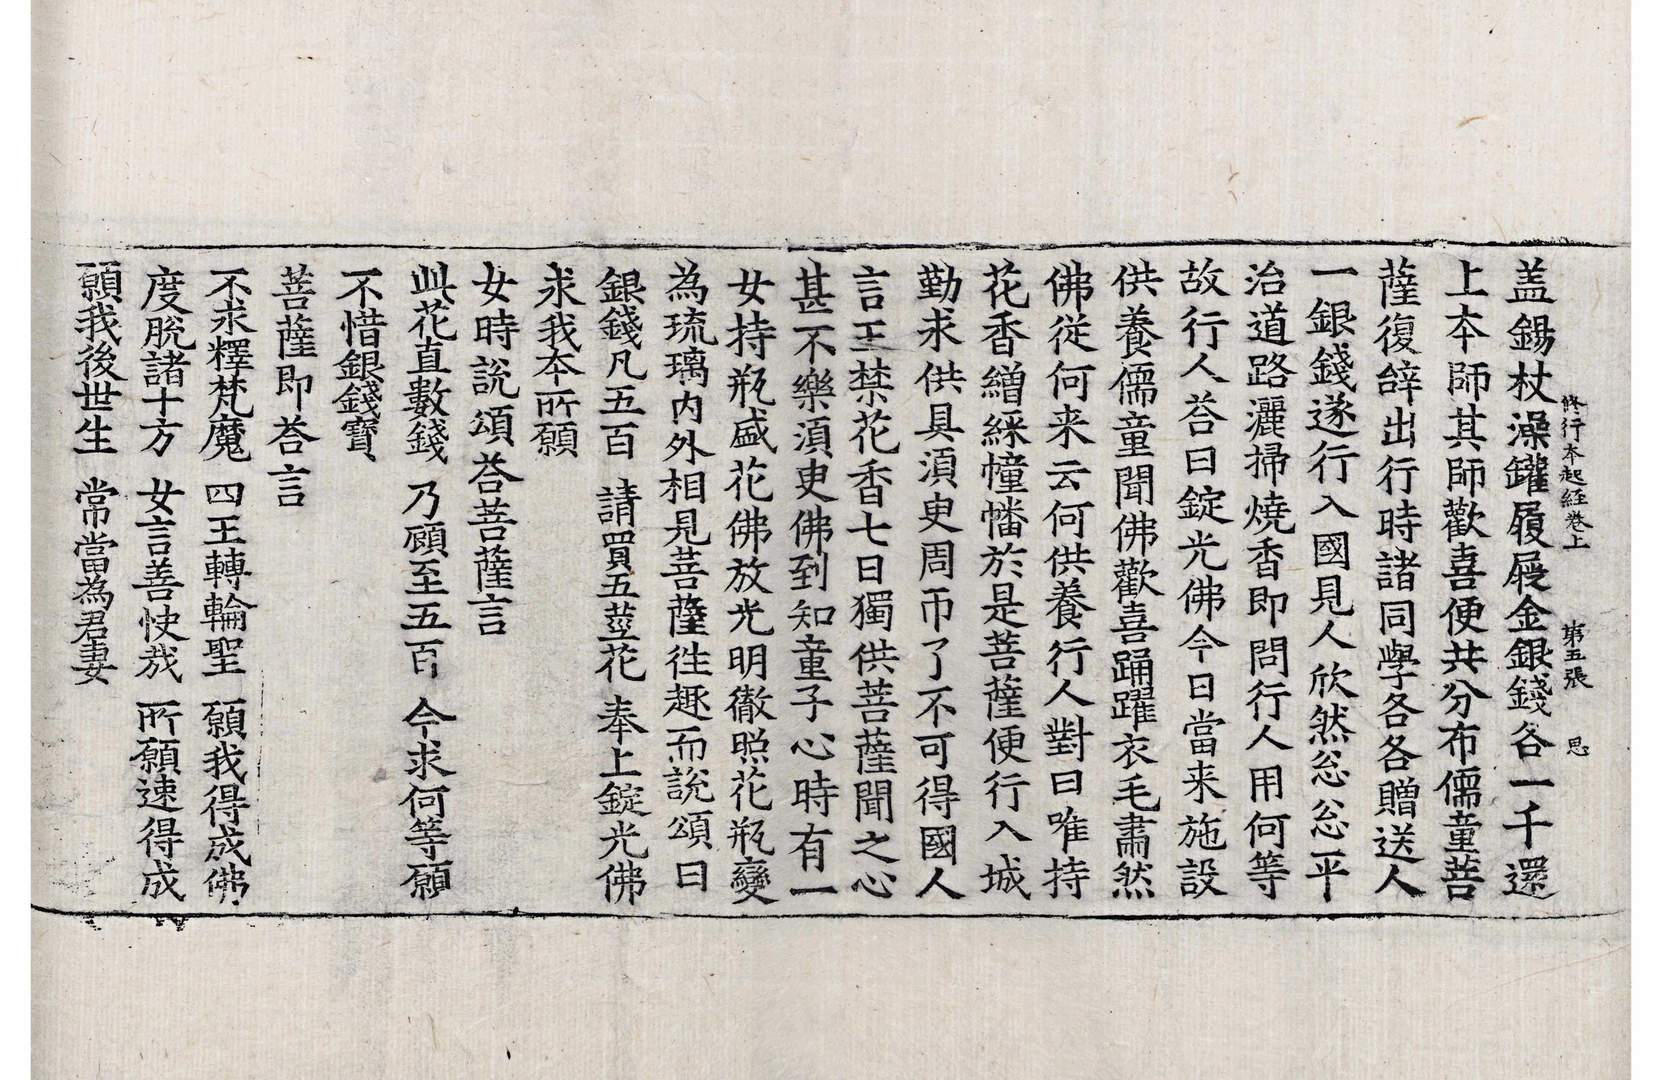 修行本起経卷上 第五張 思
盖錫杖澡罐履屐金銀錢各一千還
上本師其師歡喜便共分布儒童菩
薩復辞出行時諸同學各各贈送人
一銀錢遂行入國見人欣然忩忩平
治道路灑掃燒香即問行人用何等
故行人荅曰錠光佛今日當来施設
供養儒童聞佛歡喜踊躍衣毛肅然
佛従何来云何供養行人對曰唯持
花香繒綵幢幡於是菩薩便行入城
勤求供具湏臾周帀了不可得國人
言王禁花香七日獨供菩薩聞之心
甚不樂湏臾佛到知童子心時有一
女持瓶盛花佛放光明徹照花瓶變
為琉璃内外相見菩薩徃趣而說頌曰
銀錢凡五百 請買五莖花 奉上錠光佛
求我本所願
女時說頌荅菩薩言
此花直數錢 乃顧至五百 今求何等願
不惜銀錢寶
菩薩即荅言
不求釋梵魔 四王轉輪聖 願我得成佛
度脫諸十方 女言善快㦲 所願速得成
願我後世生 常當為君妻